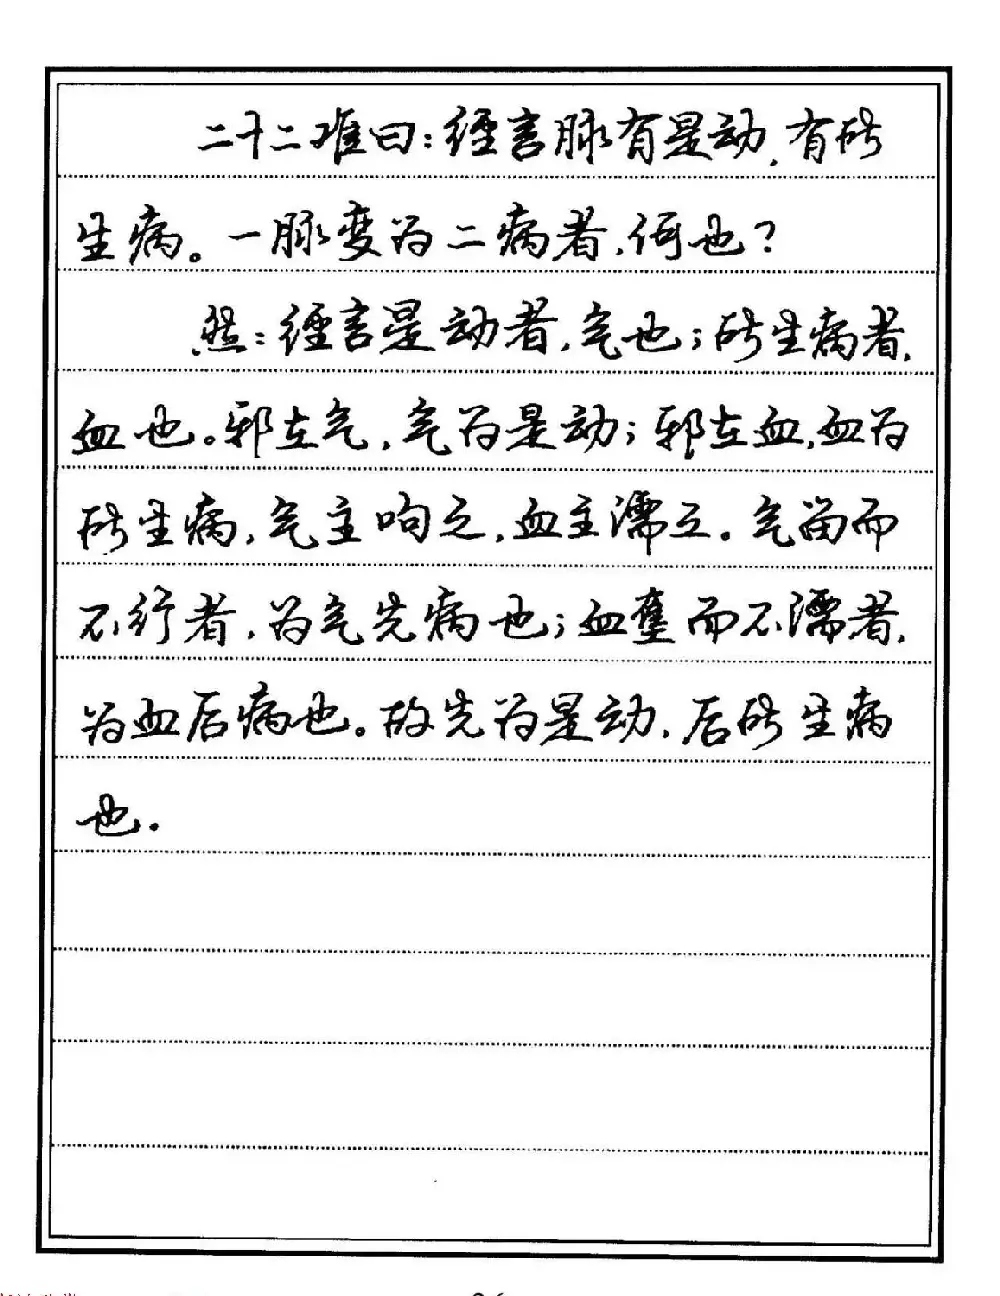 二十二难曰：经言脉有是动，有所
生病。一脉变为二病者，何也？
然：经言是动者，气也；所生病者，
血也。邪在气，气为是动；邪在血，血为
所生病，气主呴之，血主濡之。气留而
不行者，为气先病也；血壅而不濡者，
为血后病也。故先为是动，后所生病
也.